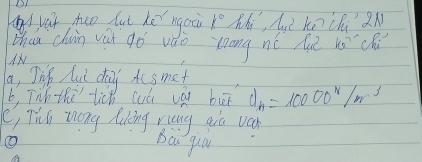 vật treo lực kế ngoài k° khí, lực kế chỉ 2N
chìm vật đó vào trong nc lực kế chỉ
1N
a, Tính lực đẩy Acsmet
b, Tính thể tích của vật biết dn = 10000 N/m³
c, Tính trọng lượng riêng của vật
Bài giải